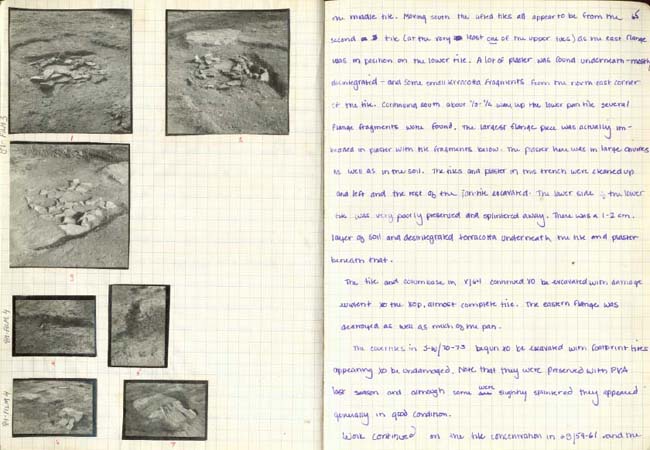 82-FILM 3
1
2
3
82-FILM 4
4
5
82-FILM 4
6
7
65
the middle tile. Moving south the tiles all appear to be from the
second tile (at the very least one of the upper tiles) as the east flange
was in position on the lower tile. A lot of plaster was found underneath - mostly
disintegrated - and some small terracotta fragments from the north east corner
of the tile. Continuing south about 1/3-1/2 way up the lower pan tile several
flange fragments were found. The largest flange piece was actually im-
bedded in plaster with tile fragments below. The plaster here was in large chunks
as well as in the soil. The tiles and plaster in this trench were cleaned up
and left and the rest of the pan tile excavated. The lower side of the lower
tile was very poorly preserved and splintered away. There was a 1-2 cm.
layer of soil and desintegrated terracotta underneath the tile and plaster
beneath that.
The tile and column base in continued to be excavated with damage
evident to the top, almost complete tile. The eastern flange was
destroyed as well as much of the pan.
The in 70-73 begun to be excavated with footprint tiles
appearing to be undamaged. Note that they were preserved with PVA
last season and although some were slightly splintered they appeared
generally in good condition.
Work continued on the tile concentration in /59-61, and the